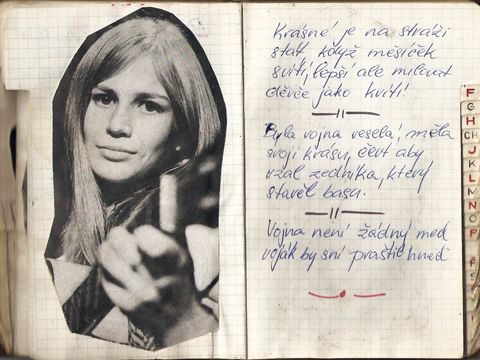 Krásné je na stráži
stát, když měsíček
svítí, lepší ale milovat
děvče jako kvítí!
Byla vojna veselá, měla
svoji krásu, čert aby
vzal zedníka, který
stavěl basu.
Vojna není žádný med
voják by sní praštil hned
F
G
H
CH
J
K
L
M
N
O
P